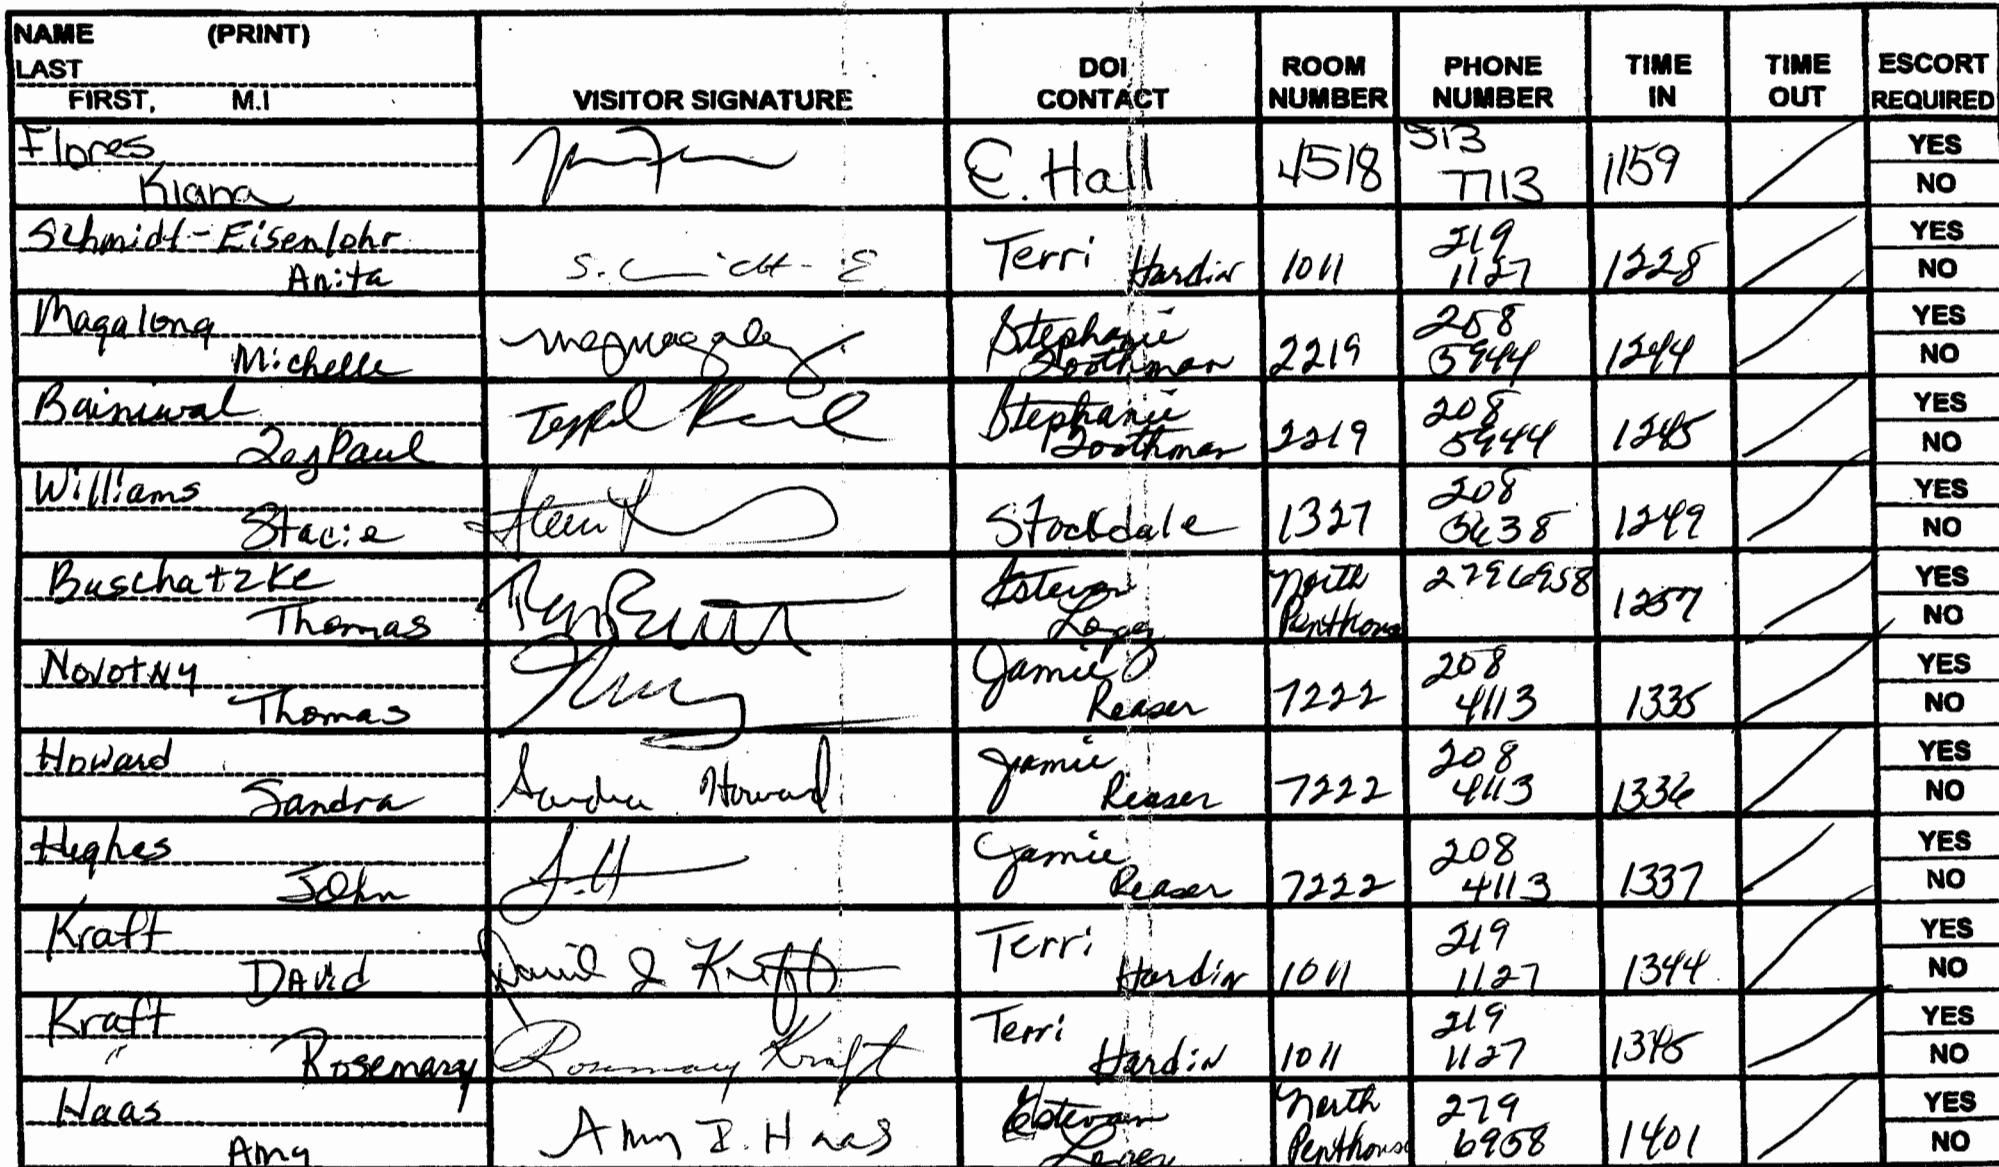 NAME (PRINT)
LAST
FIRST, M.I
VISITOR SIGNATURE
DOI
CONTACT
ROOM
NUMBER
PHONE
NUMBER
TIME
IN
TIME
OUT
ESCORT
REQUIRED
Flores
Kiana
E. Hall
4518
513
7713
1159
YES
NO
Schmidt-Eisenlohr
Anita
Terri
Hardin
1011
219
1127
1228
YES
NO
Magalong
Michelle
Stephanie
Toothman
2219
208
5944
1244
YES
NO
Bainiwal
TejPaul
Stephanie
Toothman
2219
208
5944
1245
YES
NO
Williams
Stacie
Stockdale
1327
208
5638
1249
YES
NO
Buschatzke
Thomas
Estevan
Lopez
North
Penthouse
2796958
1257
YES
NO
Novotny
Thomas
Jamie
Reaser
7222
208
4113
1335
YES
NO
Howard
Sandra
Sandra Howard
Jamie
Reaser
7222
208
4113
1336
YES
NO
Hughes
John
Jamie
Reaser
7222
208
4113
1337
YES
NO
Kraft
David
David J Kraft
Terri
Hardin
1011
219
1127
1344
YES
NO
Kraft
"
Rosemary
Rosemary Kraft
Terri
Hardin
1011
219
1127
1345
YES
NO
Haas
Amy
Amy I. Haas
Estevan
Lopez
North
Penthouse
279
6958
1401
YES
NO